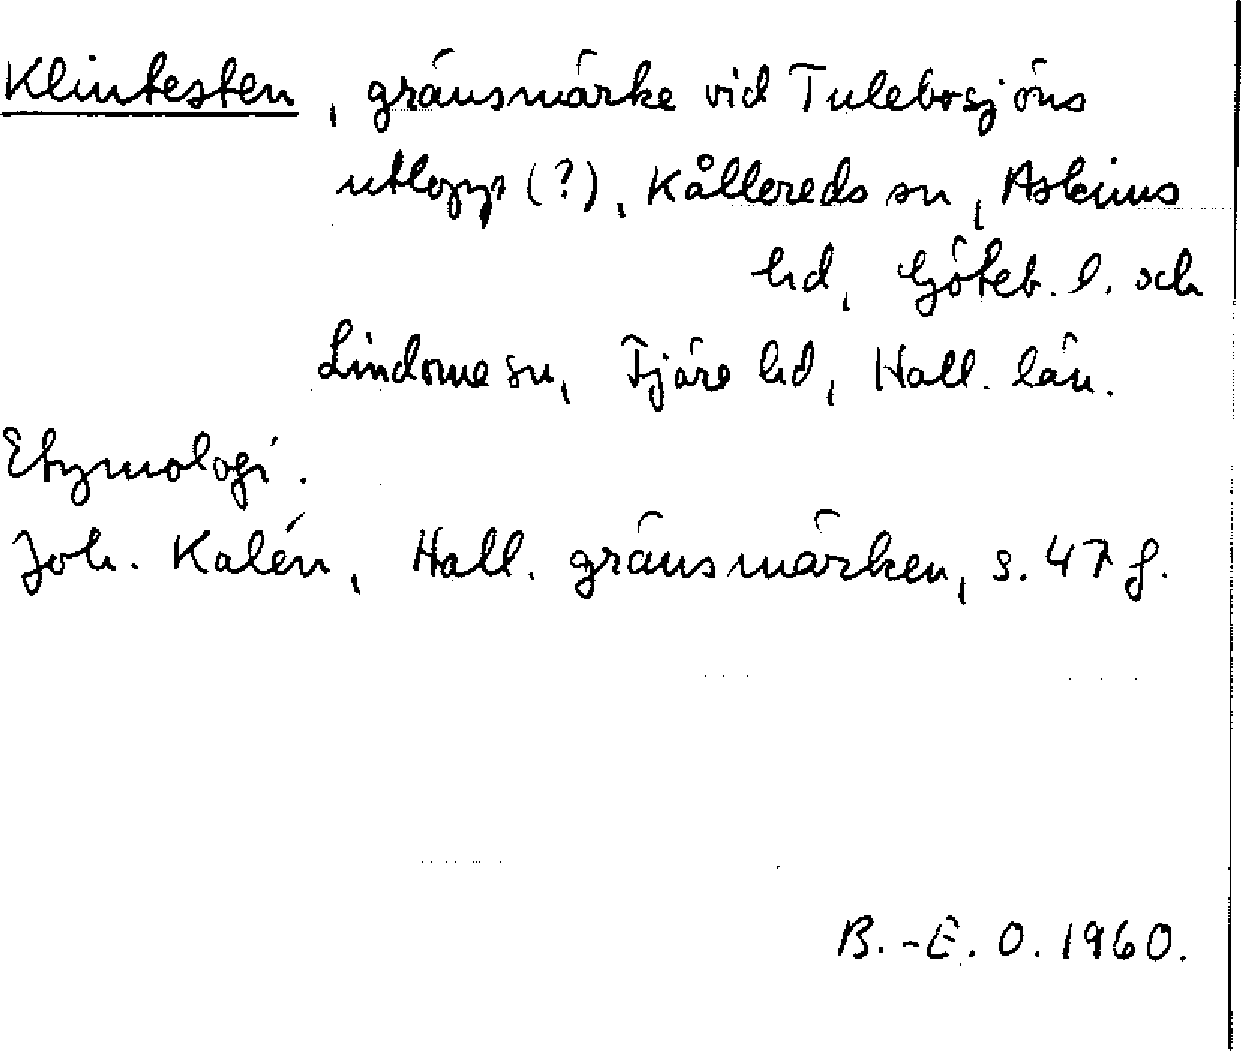 Klintesten, gränsmärke vid Tulebosjöns
utlopp (?), Kållereds sn, Askims
hd, Göteb. l. och
Lindome sn, Fjäre hd, Hall. län.
Etymologi.
Joh. Kalén, Hall. gränsmärken, s. 47 f.
B.-E. O. 1960.